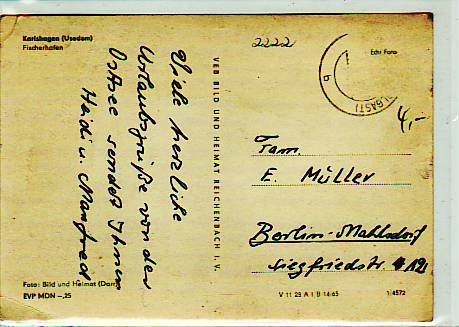 Karlshagen (Usedom)
Fischerhafen
2222
Echt Foto
b
4,-
Viele herzliche
Urlaubsgrüße von der
Ostsee sendet Ihnen
Heidi u. Manfred
VEB BILD UND HEIMAT REICHENBACH I. V.
Fam.
E. Müller
Berlin-Mahlsdorf
Siegfriedstr.
Foto: Bild und Heimat
EVP MDN -,25
V 11 28 A 1 B 14 65
1/4572